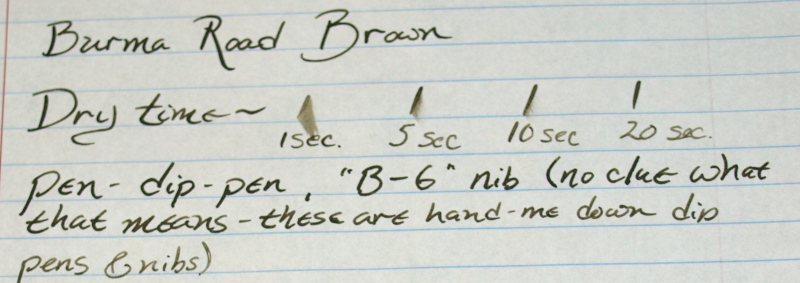 Burma Road Brown
Dry time~ 1sec. 5 sec 10 sec 20 sec.
pen- dip-pen, "B-6" nib (no clue what
that means-these are hand-me down dip
pens & nibs)